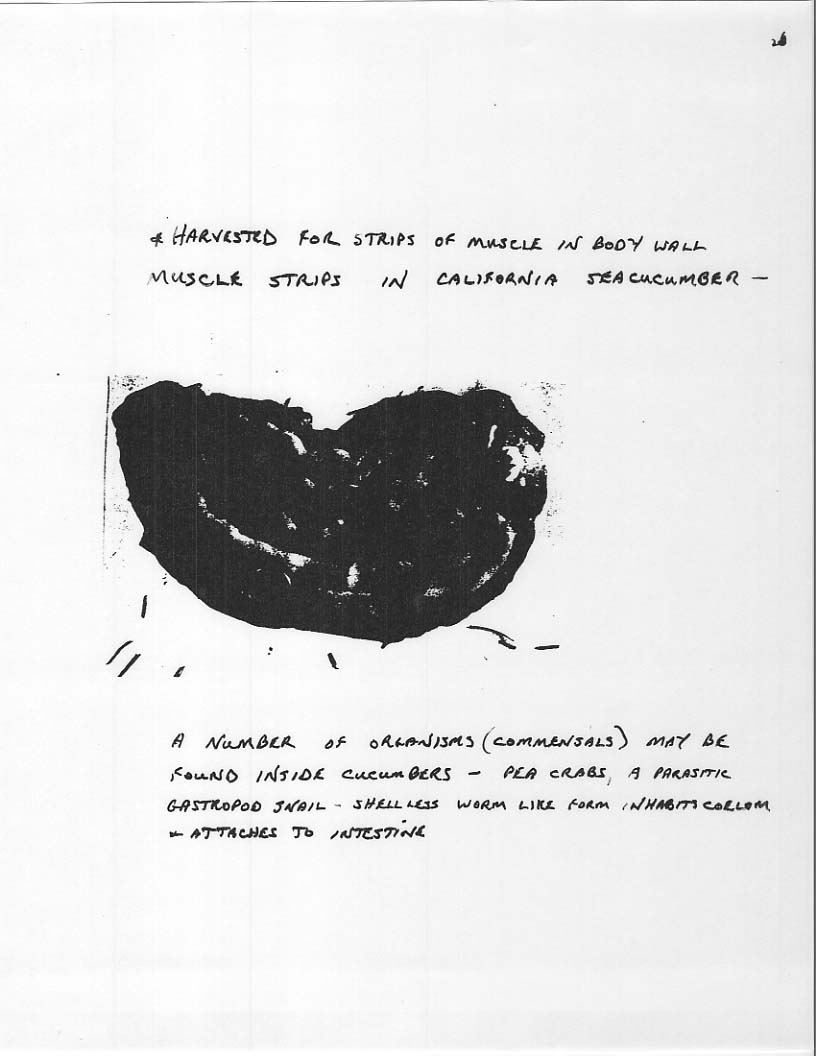 26
* HARVESTED FOR STRIPS OF MUSCLE IN BODY WALL
MUSCLE STRIPS IN CALIFORNIA SEACUCUMBER —
A NUMBER OF ORGANISMS (COMMENSALS) MAY BE
FOUND INSIDE CUCUMBERS — PEA CRABS, A PARASITIC
GASTROPOD SNAIL - SHELLLESS WORM LIKE FORM INHABITS COELOM
& ATTACHES TO INTESTINE